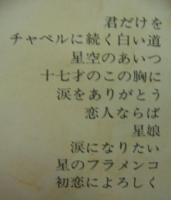 君だけを
チャペルに続く白い道
星空のあいつ
十七才のこの胸に
涙をありがとう
恋人ならば
星娘
涙になりたい
星のフラメンコ
初恋によろしく